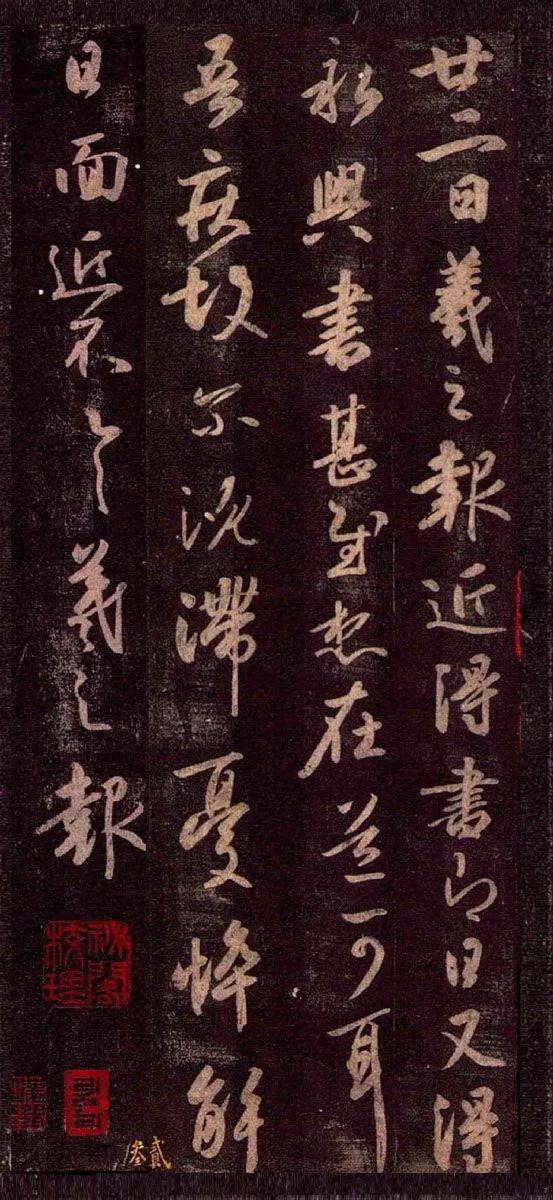 廿二日羲之報近得書即日又得
永興書甚慰想在道可耳
吾疾故尔沉滯憂悴解
日面近不具羲之報
秘閣校理
貳叁